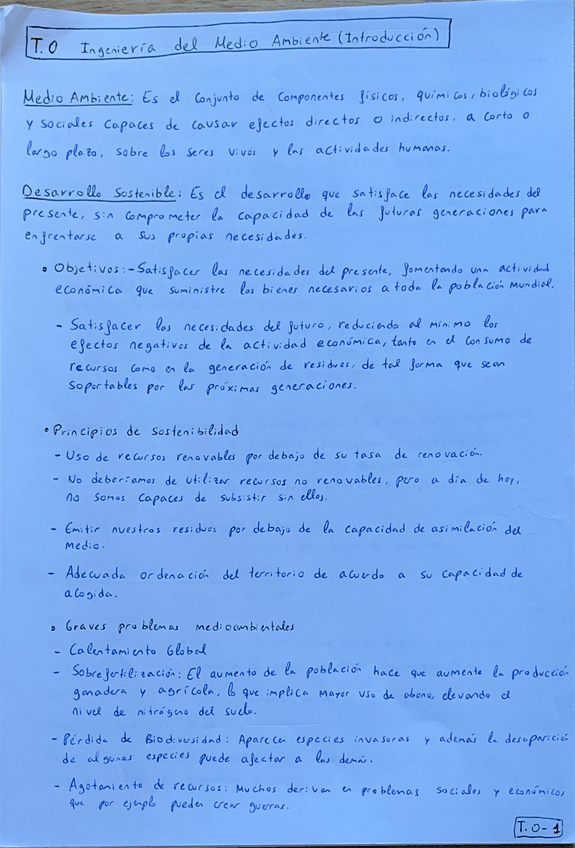 T.0 Ingeniería del Medio Ambiente (Introducción)
Medio Ambiente: Es el conjunto de componentes físicos, químicos, biológicos
y sociales capaces de causar efectos directos o indirectos, a corto o
largo plazo, sobre los seres vivos y las actividades humanas.
Desarrollo Sostenible: Es el desarrollo que satisface las necesidades del
presente, sin comprometer la capacidad de las futuras generaciones para
enfrentarse a sus propias necesidades.
• Objetivos: - Satisfacer las necesidades del presente, fomentando una actividad
económica que suministre los bienes necesarios a toda la población mundial.
- Satisfacer las necesidades del futuro, reduciendo al mínimo los
efectos negativos de la actividad económica, tanto en el consumo de
recursos como en la generación de residuos, de tal forma que sean
soportables por las próximas generaciones.
• Principios de sostenibilidad
- Uso de recursos renovables por debajo de su tasa de renovación.
- No deberíamos de utilizar recursos no renovables, pero a día de hoy,
no somos capaces de subsistir sin ellos.
- Emitir nuestros residuos por debajo de la capacidad de asimilación del
medio.
- Adecuada ordenación del territorio de acuerdo a su capacidad de
acogida.
• Graves problemas medioambientales
- Calentamiento Global
- Sobrefertilización: El aumento de la población hace que aumente la producción
ganadera y agrícola, lo que implica mayor uso de abono, elevando el
nivel de nitrógeno del suelo.
- Pérdida de Biodiversidad: Aparecen especies invasoras y además la desaparición
de algunas especies puede afectar a las demás.
- Agotamiento de recursos: Muchos derivan en problemas sociales y económicos
que por ejemplo pueden crear guerras.
T.0-1